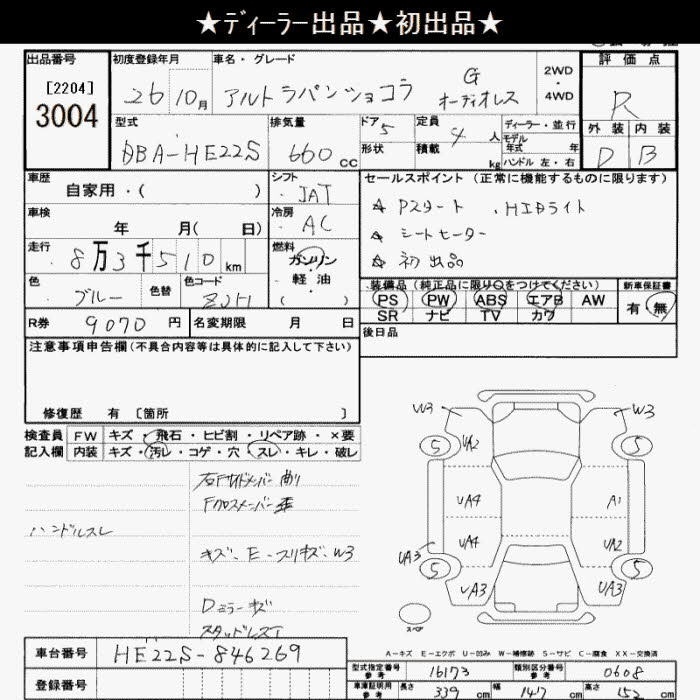 ★ディーラー出品★初出品★
出品番号
[2204]
3004
初度登録年月
26 10月
車名・グレード
アルトラパンショコラ G オーディオレス
2WD・4WD
評価点
R
外装 内装
D B
型式
DBA-HE22S
排気量
660 CC
ドア 5
形状
定員 4 人
積載 kg
ディーラー・並行
モデル年式 年
ハンドル 左・右
車歴
自家用・( )
シフト
JAT
車検
年 月( 日)
冷房
AC
走行
8万3千510 km
燃料
ガソリン・軽油
( )
色
ブルー
色替
色コード
R券 9070 円
名変期限 月 日
セールスポイント (正常に機能するものに限ります)
☆ Pスタート .HIDライト
☆ シートヒーター
☆ 初出品
装備品(純正品に限り○をつけてください)
PS PW ABS エアB AW
SR ナビ TV カワ
新車保証書
有・無
後日品
注意事項申告欄(不具合内容等は具体的に記入して下さい)
修復歴 有 〔箇所 〕
検査員記入欄
FW キズ・飛石・ヒビ割・リペア跡・×要
内装 キズ・汚レ・コゲ・穴・スレ・キレ・破レ
右Fサイドメンバー曲り
Fクロスメンバー歪
ハンドルスレ
キズ・E・スリキズ・W3
Dミラーキズ
スタッドレスT
W3 W3
5 UA2 5
UA4 A1
UA4 UA2
UA3
5 5
UA3 UA3
スペア
A-キズ E-エクボ U-凹み W-補修跡 S-サビ C-腐食 XX-交換済
車台番号 HE22S-846269
登録番号
型式指定番号 参考 16173
類別区分番号 参考 0608
車庫証明用 参考 長さ 339 cm 幅 147 cm 高さ 152 cm